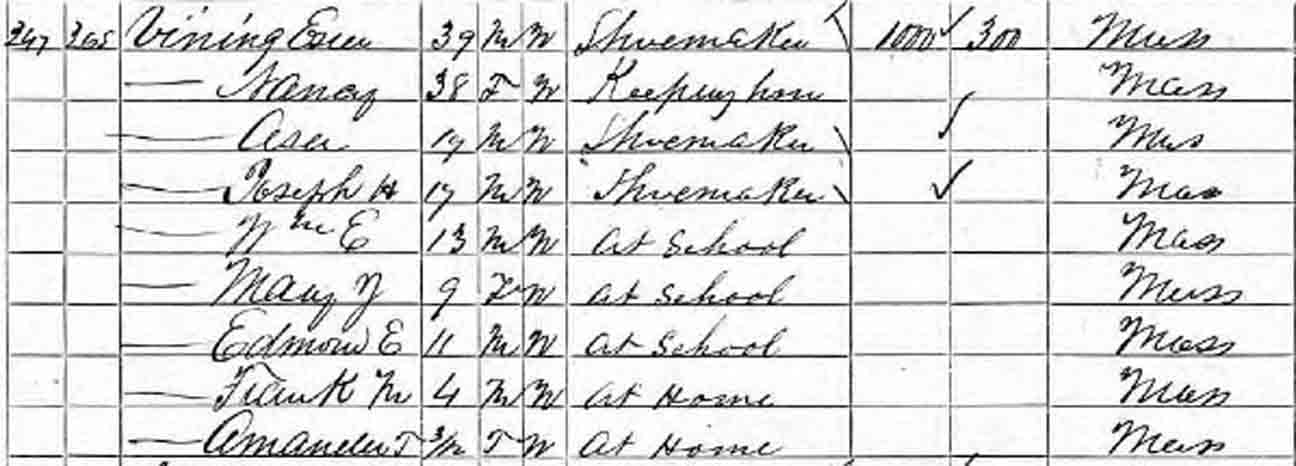 347 365 Vining 39 M W Shoemaker 1000 300 Mass
— Nancy 38 F W Keeping hous Mass
— Asa 19 M W Shoemaker Mass
— Joseph H 17 M W Shoemaker Mass
— Wm E 13 M W at School Mass
— Mary 9 F W at School Mass
— Edmond E 11 M W at School Mass
— Frank M 4 M W at Home Mass
— Amanda T 3/12 F W at Home Mass